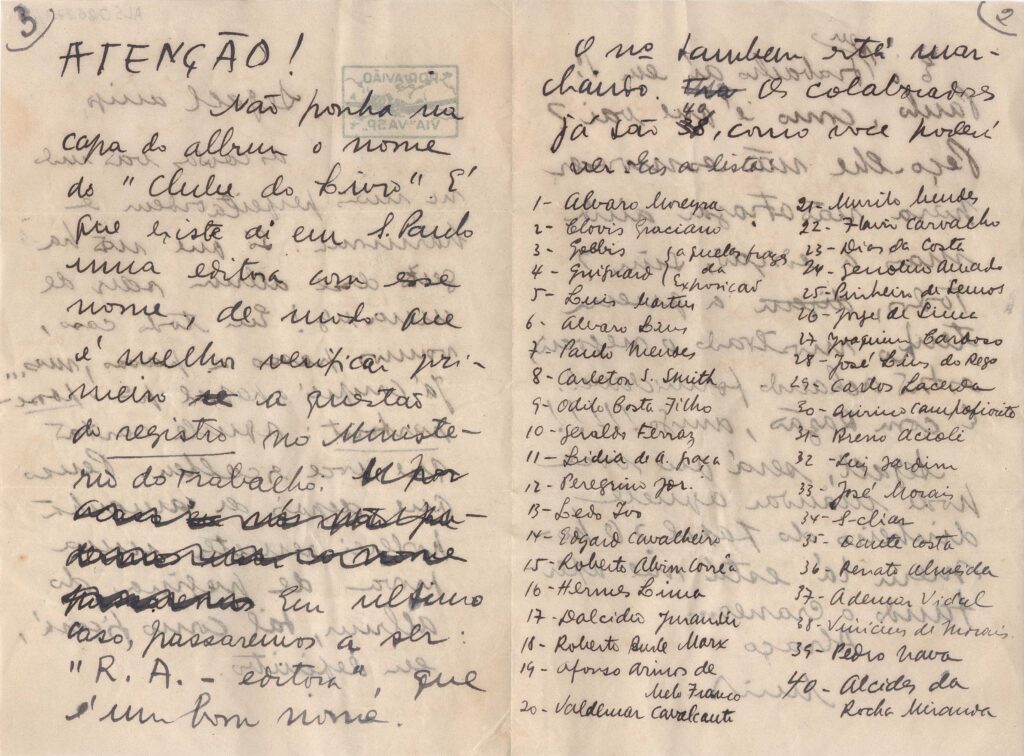 3
ATENÇÃO!
Não ponha na
capa do album o nome
do "Clube do Livro" É
que existe aí em S. Paulo
uma editora com esse
nome, de modo que
é melhor verificar pri-
meiro a questão
do registro no Ministe-
rio do Trabalho.
Em ultimo
caso, passaremos a ser:
"R. A. - editora", que
é um bom nome.
POR AVIÃO
VIA "VASP"
2
O nº tambem está mar-
chando. Os colaboradores
já são 40, como voce poderá
ver. Eis a lista
1- Alvaro Moreyra
2- Clovis Graciano
3-
4- Guignard
(aquelas fotos
da
Exposição
5- Luis Martins
6- Alvaro Lins
7- Paulo Mendes
8- Carleton S. Smith
9- Odilo Costa Filho
10- Geraldo Ferraz
11- Lidia de A.
12- Peregrino Jor.
13- Ledo Ivo
14- Edgard Cavalheiro
15- Roberto Alvim Corrêa
16- Hermes Lima
17- Dalcidio Jurandir
18- Roberto Burle Marx
19- Afonso Arinos de
Melo Franco
20- Valdemar Cavalcanti
21- Murilo Mendes
22- Flavio Carvalho
23- Dias da Costa
24- Genolino Amado
25- Pinheiro de Lemos
26- Jorge de Lima
27- Joaquim Cardoso
28- José Lins do Rego
29- Carlos Lacerda
30- Quirino Campofiorito
31- Breno Acioli
32- Luis Jardim
33- José Morais
34- Scliar
35- Dante Costa
36- Renato Almeida
37- Ademar Vidal
38- Vinicius de Morais
39- Pedro Nava
40- Alcides da
Rocha Miranda